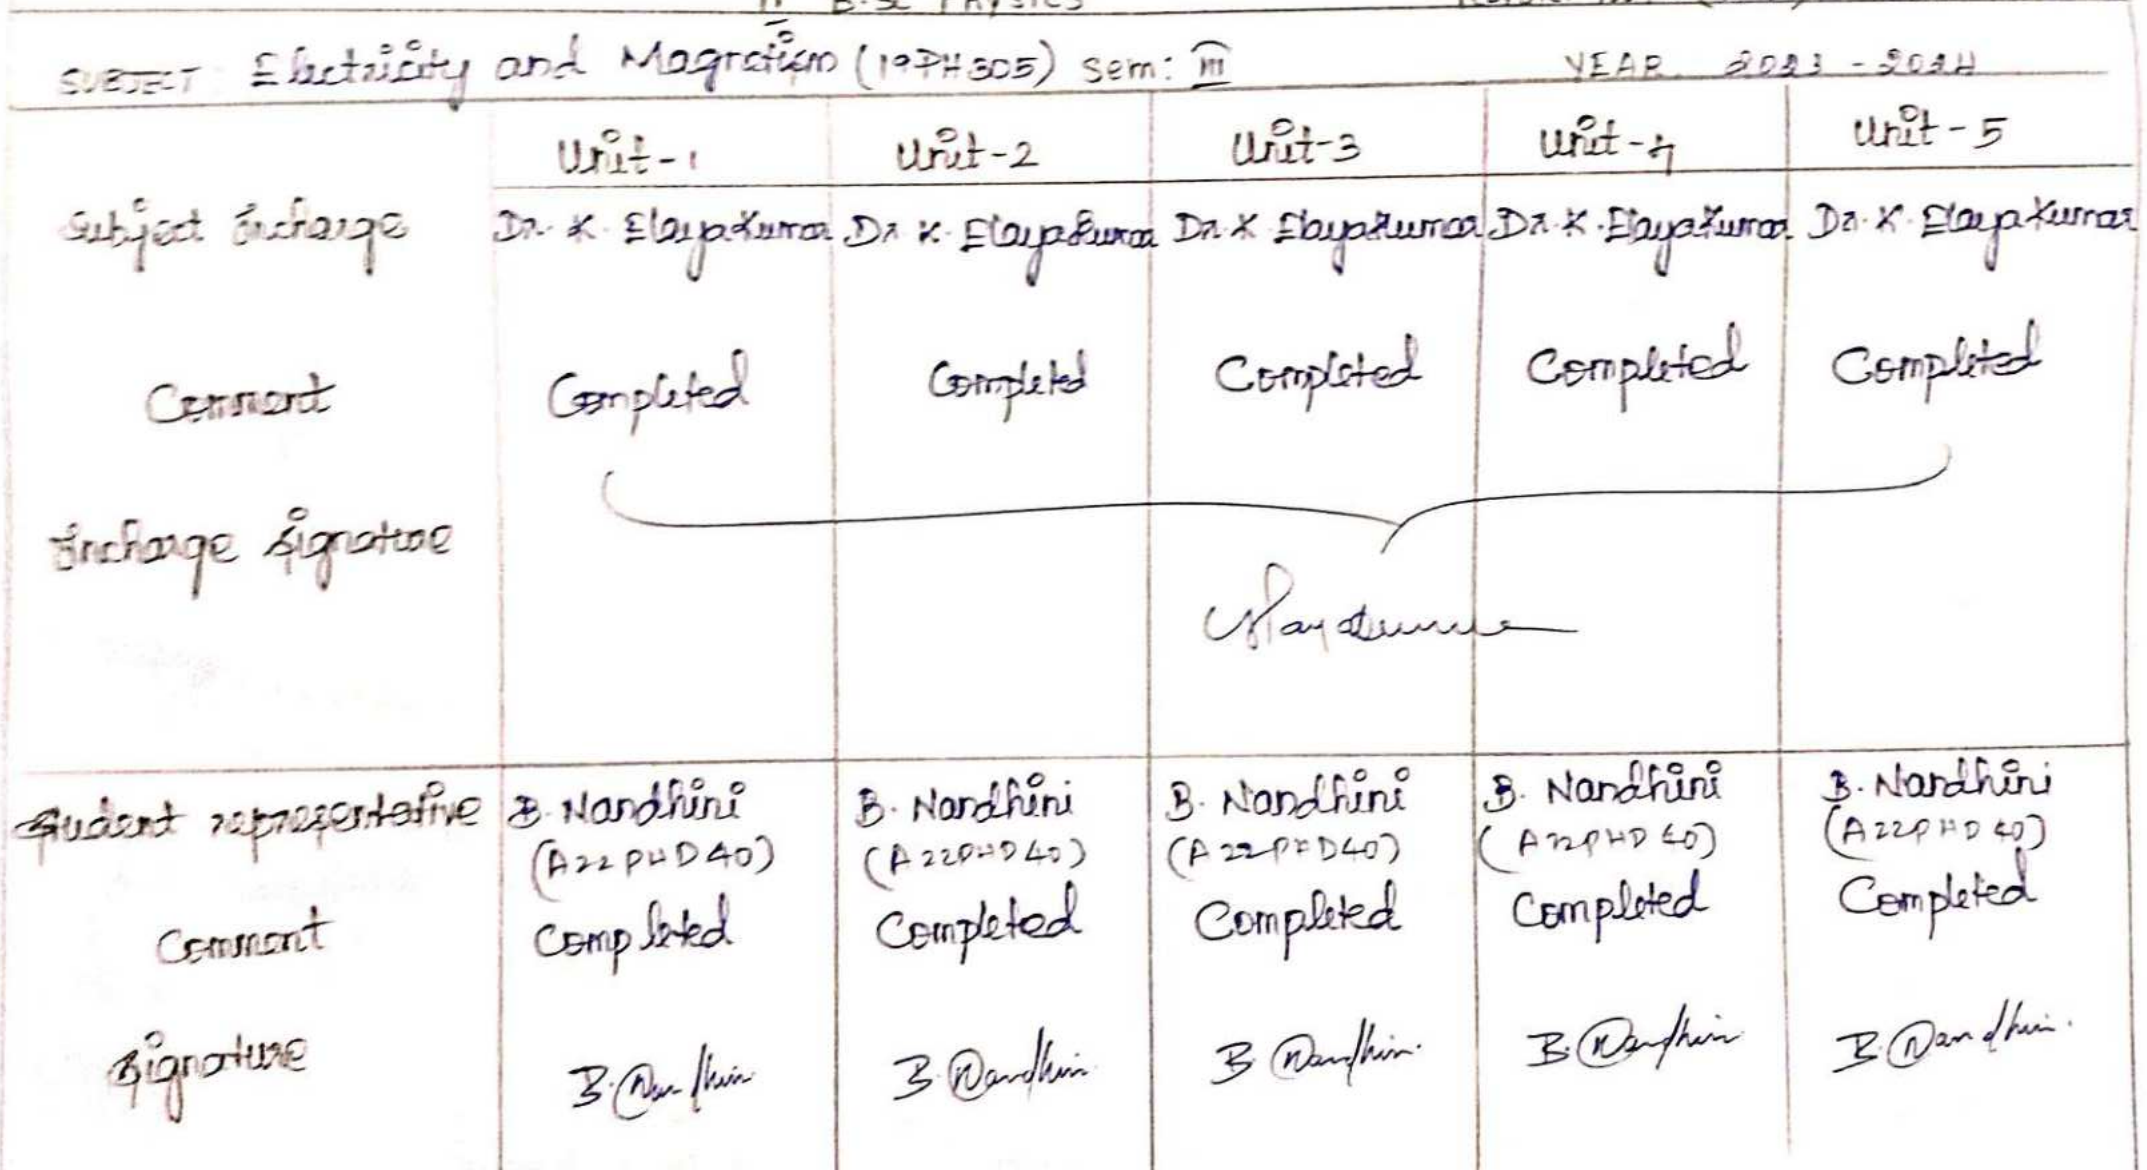 II B.Sc Physics
SUBJECT: Electricity and Magnetism (19PH305) Sem: III YEAR 2023 - 2024
Unit-1 Unit-2 Unit-3 Unit-4 Unit-5
Subject Incharge Dr. K. Elayakumar Dr. K. Elayakumar Dr. K. Elayakumar Dr. K. Elayakumar Dr. K. Elayakumar
Comment Completed Completed Completed Completed Completed
Incharge Signature
Elayakumar
Student representative B. Nandhini B. Nandhini B. Nandhini B. Nandhini B. Nandhini
(A22PHD40) (A22PHD40) (A22PHD40) (A22PHD40) (A22PHD40)
Comment Completed Completed Completed Completed Completed
Signature B. Nandhini B. Nandhini B. Nandhini B. Nandhini B. Nandhini